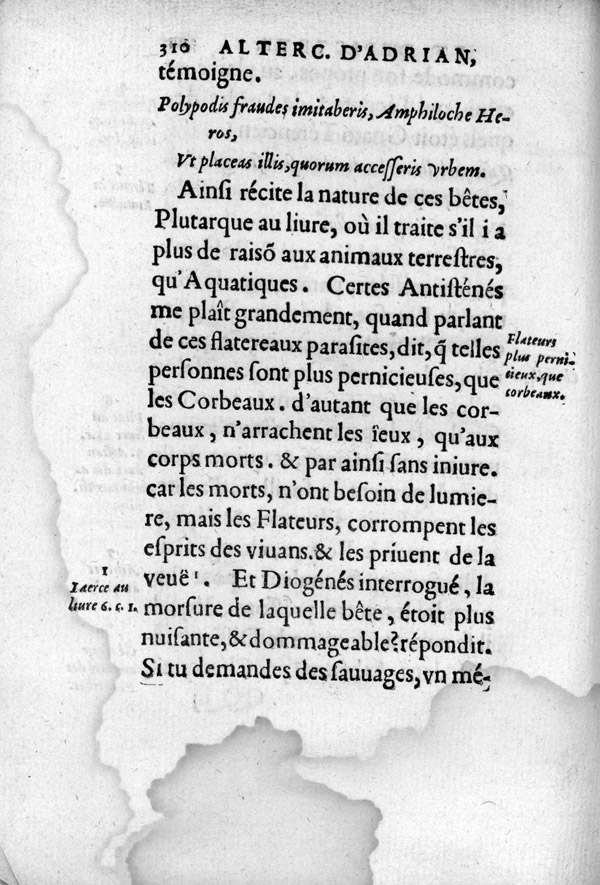 310 ALTERC. D'ADRIAN,
témoigne.
Polypodis fraudes imitaberis, Amphiloche He-
ros,
Vt placeas illis, quorum accesseris vrbem.
Ainsi récite la nature de ces bêtes,
Plutarque au liure, où il traite s'il i a
plus de raisõ aux animaux terrestres,
qu'Aquatiques. Certes Antisténés
me plaît grandement, quand parlant
de ces flatereaux parasites, dit, q̃ telles
personnes sont plus pernicieuses, que
les Corbeaux. d'autant que les cor-
beaux, n'arrachent les ïeux, qu'aux
corps morts. & par ainsi sans iniure.
car les morts, n'ont besoin de lumie-
re, mais les Flateurs, corrompent les
esprits des viuans. & les priuent de la
veuë¹. Et Diogénés interrogué, la
morsure de laquelle bête, étoit plus
nuisante, & dommageable? répondit.
Si tu demandes des sauuages, vn mé-
Flateurs
plus perni-
cieux, que
corbeaux.
1
Laerce au
liure 6. c. 1.